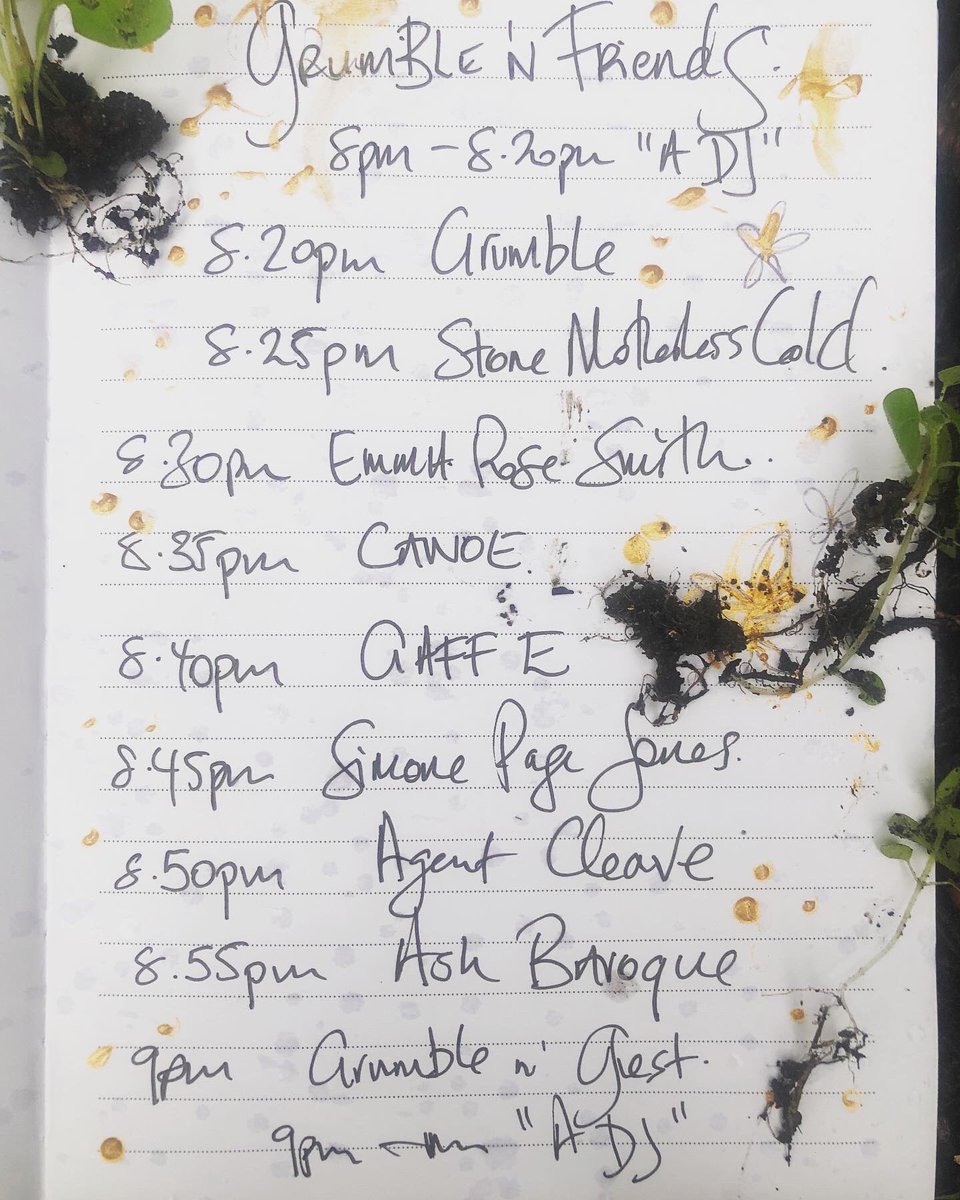 Grumble 'N Friends.
8pm - 8.20pm "A DJ"
8.20pm Grumble
8.25pm Stone Motherless Cold.
8.30pm Emma Rose Smith..
8.35pm CANOE.
8.40pm GAFF E
8.45pm Simone Page Jones.
8.50pm Agent Cleave
8.55pm Ash Baroque
9pm Grumble n' Guest.
9pm - "A DJ"